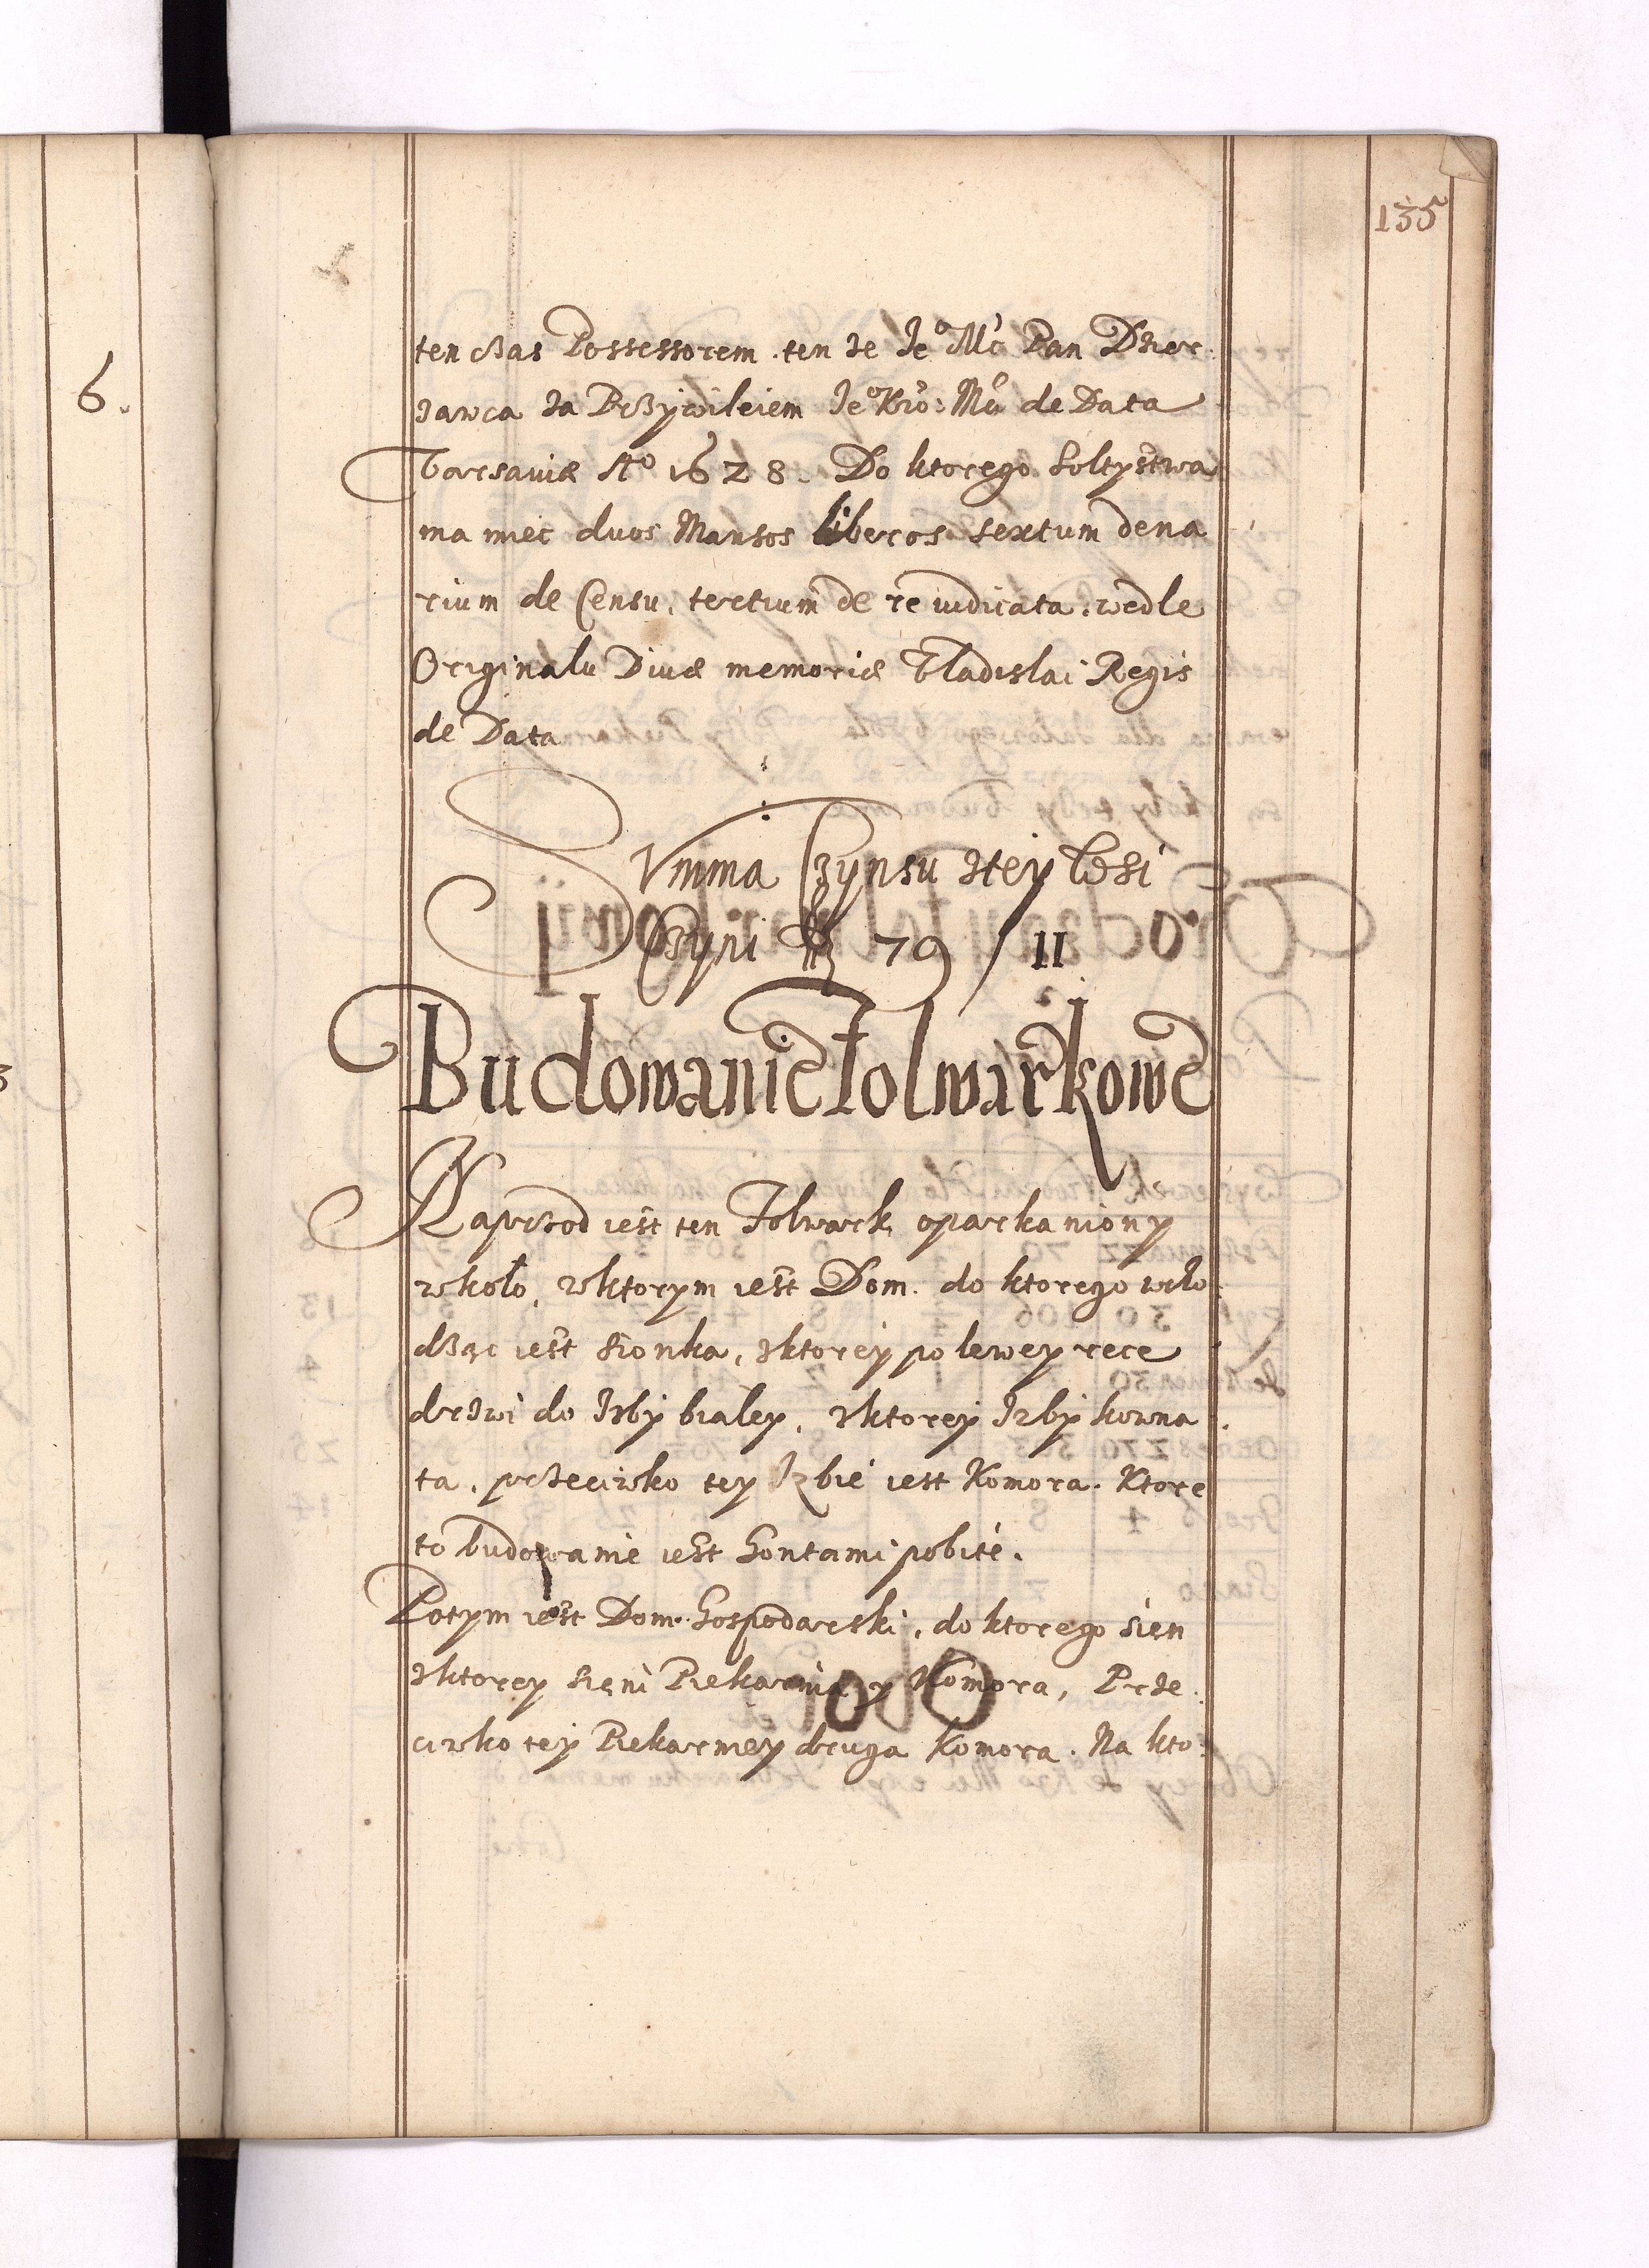 135
6.
ten czas Possessorem. ten że Jeº Mć Pan Dzier
żawca za Przÿwileiem Jeº Kró: Mći de Data
Varsaviæ Aº 1628. Do ktorego Soltystwa
ma miec duos Mansos liberos sextum dena
rium de Censu, tertium de re iudicata. wedle
Originalu Divæ memoriæ Vladislai Regis
de Data
Summa Czynsu ztey Wsi
Czyni 79 / II
Budowanie Folwarkowe
Naprzod iest ten Folwark oparkaniony
wkoło, wktorym iest Dom. do ktorego wcho
dząc iest sionka, zktoreÿ po lewey rece
drzwi do Izbÿ bialey, zktoreÿ Izbÿ komna
ta, przeciwko teÿ Izbie iest Komora. Ktore
to budowanie iest Gontami pobite.
Potym iest Dom Gospodarski, do ktorego sien
zktorey sieni Piekarnia y Komora, Prze
ciwko teÿ Piekarniey druga Komora. Na kto